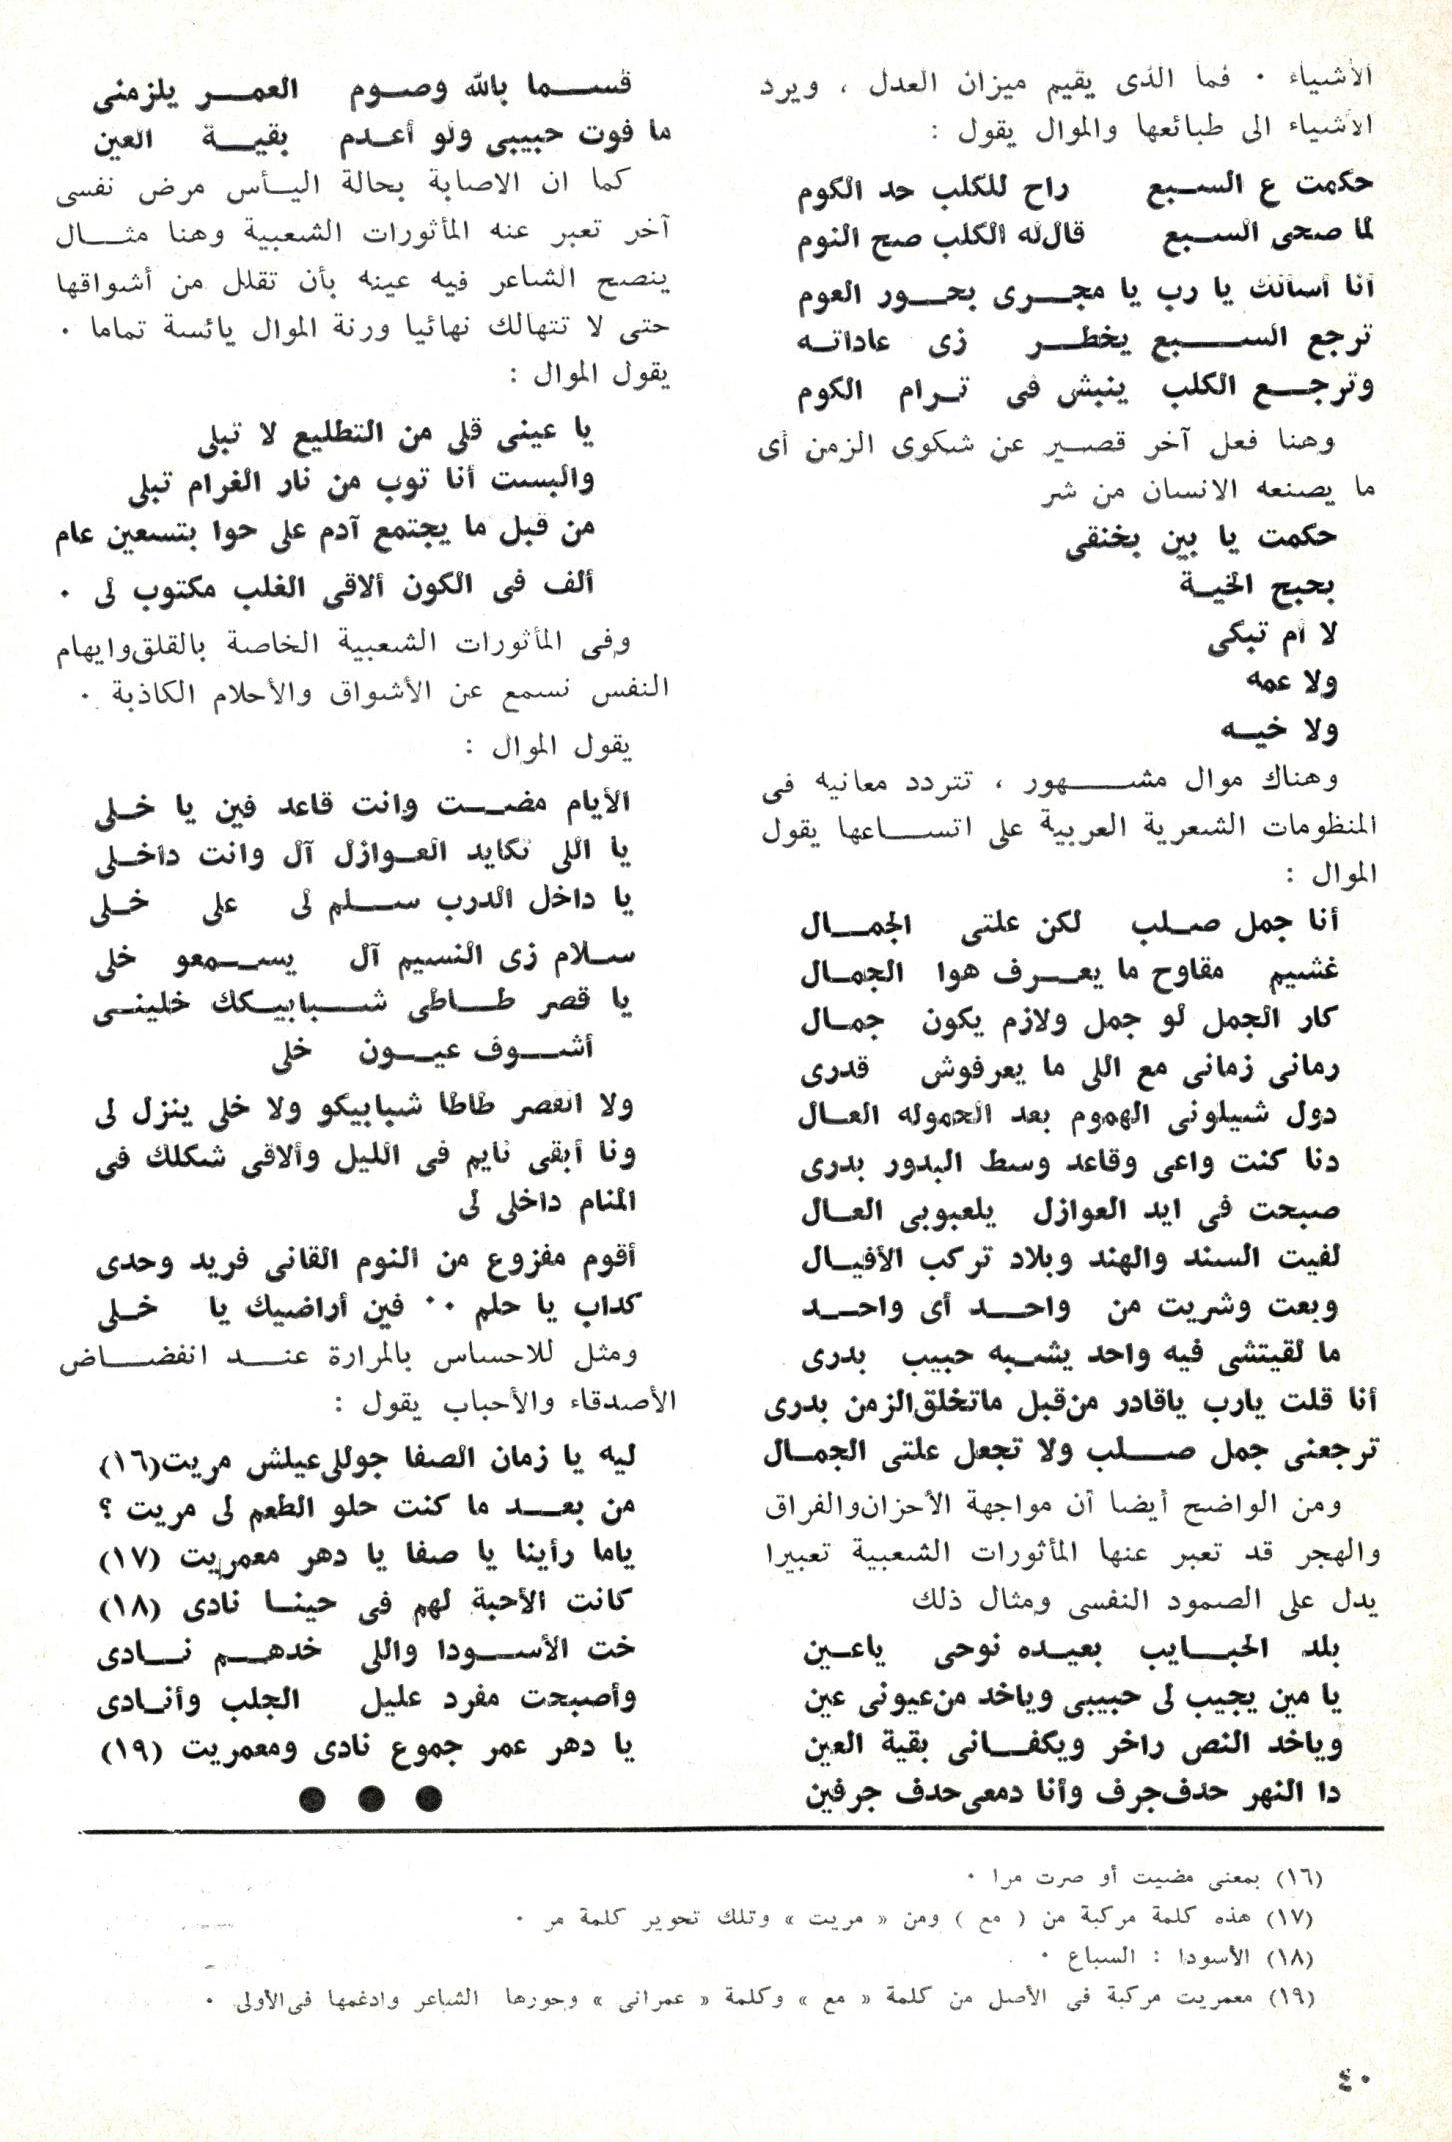 الأشياء ٠ فما الذى يقيم ميزان العدل ، ويرد
الأشياء الى طبائعها والموال يقول :
حكمت ع السبع راح للكلب حد الكوم
لما صحى السبع قال له الكلب صح النوم
أنا أسألك يا رب يا مجرى بحور العوم
ترجع السبع يخطر زى عاداته
وترجع الكلب ينبش فى ترام الكوم
وهنا فعل آخر قصير عن شكوى الزمن أى
ما يصنعه الانسان من شر
حكمت يا بين بخنقى
بحبح الخية
لا أم تبكى
ولا عمه
ولا خيه
وهناك موال مشهور ، تتردد معانيه فى
المنظومات الشعرية العربية على اتساعها يقول
الموال :
أنا جمل صلب لكن علتى الجمال
غشيم مقاوح ما يعرف هوا الجمال
كار الجمل لو جمل ولازم يكون جمال
رمانى زمانى مع اللى ما يعرفوش قدرى
دول شيلونى الهموم بعد الحموله العال
دنا كنت واعى وقاعد وسط البدور بدرى
صبحت فى ايد العوازل يلعبوبى العال
لفيت السند والهند وبلاد تركب الأفيال
وبعت وشريت من واحد أى واحد
ما لقيتشى فيه واحد يشبه حبيب بدرى
أنا قلت يارب ياقادر من قبل ماتخلق الزمن بدرى
ترجعنى جمل صلب ولا تجعل علتى الجمال
ومن الواضح أيضا أن مواجهة الأحزان والفراق
والهجر قد تعبر عنها المأثورات الشعبية تعبيرا
يدل على الصمود النفسى ومثال ذلك
بلد الحبايب بعيده نوحى ياعين
يا مين يجيب لى حبيبى وياخد من عيونى عين
وياخد النص راخر ويكفانى بقية العين
دا النهر حدف جرف وأنا دمعى حدف جرفين
قسما بالله وصوم العمر يلزمنى
ما فوت حبيبى ولو أعدم بقية العين
كما ان الاصابة بحالة اليأس مرض نفسى
آخر تعبر عنه المأثورات الشعبية وهنا مثال
ينصح الشاعر فيه عينه بأن تقلل من أشواقها
حتى لا تتهالك نهائيا ورنة الموال يائسة تماما ٠
يقول الموال :
يا عينى قلى من التطليع لا تبلى
والبست أنا توب من نار الغرام تبلى
من قبل ما يجتمع آدم على حوا بتسعين عام
ألف فى الكون ألاقى الغلب مكتوب لى ٠
وفى المأثورات الشعبية الخاصة بالقلق وايهام
النفس نسمع عن الأشواق والأحلام الكاذبة ٠
يقول الموال :
الأيام مضت وانت قاعد فين يا خلى
يا اللى تكايد العوازل آل وانت داخلى
يا داخل الدرب سلم لى على خلى
سلام زى النسيم آل يسمعو خلى
يا قصر طاطى شبابيكك خلينى
أشوف عيون خلى
ولا القصر طاطا شبابيكو ولا خلى ينزل لى
ونا أبقى نايم فى الليل وألاقى شكلك فى
المنام داخلى لى
أقوم مفزوع من النوم القانى فريد وحدى
كداب يا حلم ٠٠ فين أراضيك يا خلى
ومثل للاحساس بالمرارة عند انفضاض
الأصدقاء والأحباب يقول :
ليه يا زمان الصفا جوللى عيلش مريت(١٦)
من بعد ما كنت حلو الطعم لى مريت ؟
ياما رأينا يا صفا يا دهر معمريت (١٧)
كانت الأحبة لهم فى حينا نادى (١٨)
خت الأسودا واللى خدهم نادى
وأصبحت مفرد عليل الجلب وأنادى
يا دهر عمر جموع نادى ومعمريت (١٩)
● ● ●
(١٦) بمعنى مضيت أو صرت مرا ٠
(١٧) هذه كلمة مركبة من ( مع ) ومن « مريت » وتلك تحوير كلمة مر ٠
(١٨) الأسودا : السباع ٠
(١٩) معمريت مركبة فى الأصل من كلمة « مع » وكلمة « عمرانى » وحورها الشاعر وادغمها فى الأولى ٠
٤٠